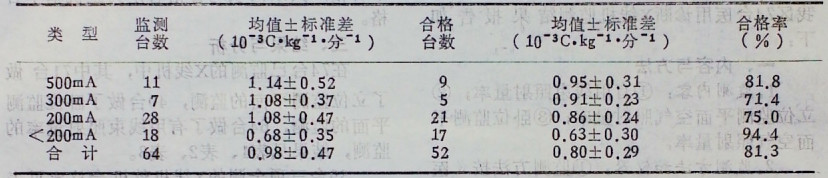 类 型 监测台数 均值±标准差(10⁻³C·kg⁻¹·分⁻¹) 合格台数 均值±标准差(10⁻³C·kg⁻¹·分⁻¹) 合格率(%)
500mA 11 1.14±0.52 9 0.95±0.31 81.8
300mA 7 1.08±0.37 5 0.91±0.23 71.4
200mA 28 1.08±0.47 21 0.86±0.24 75.0
<200mA 18 0.68±0.35 17 0.63±0.30 94.4
合 计 64 0.98±0.47 52 0.80±0.29 81.3